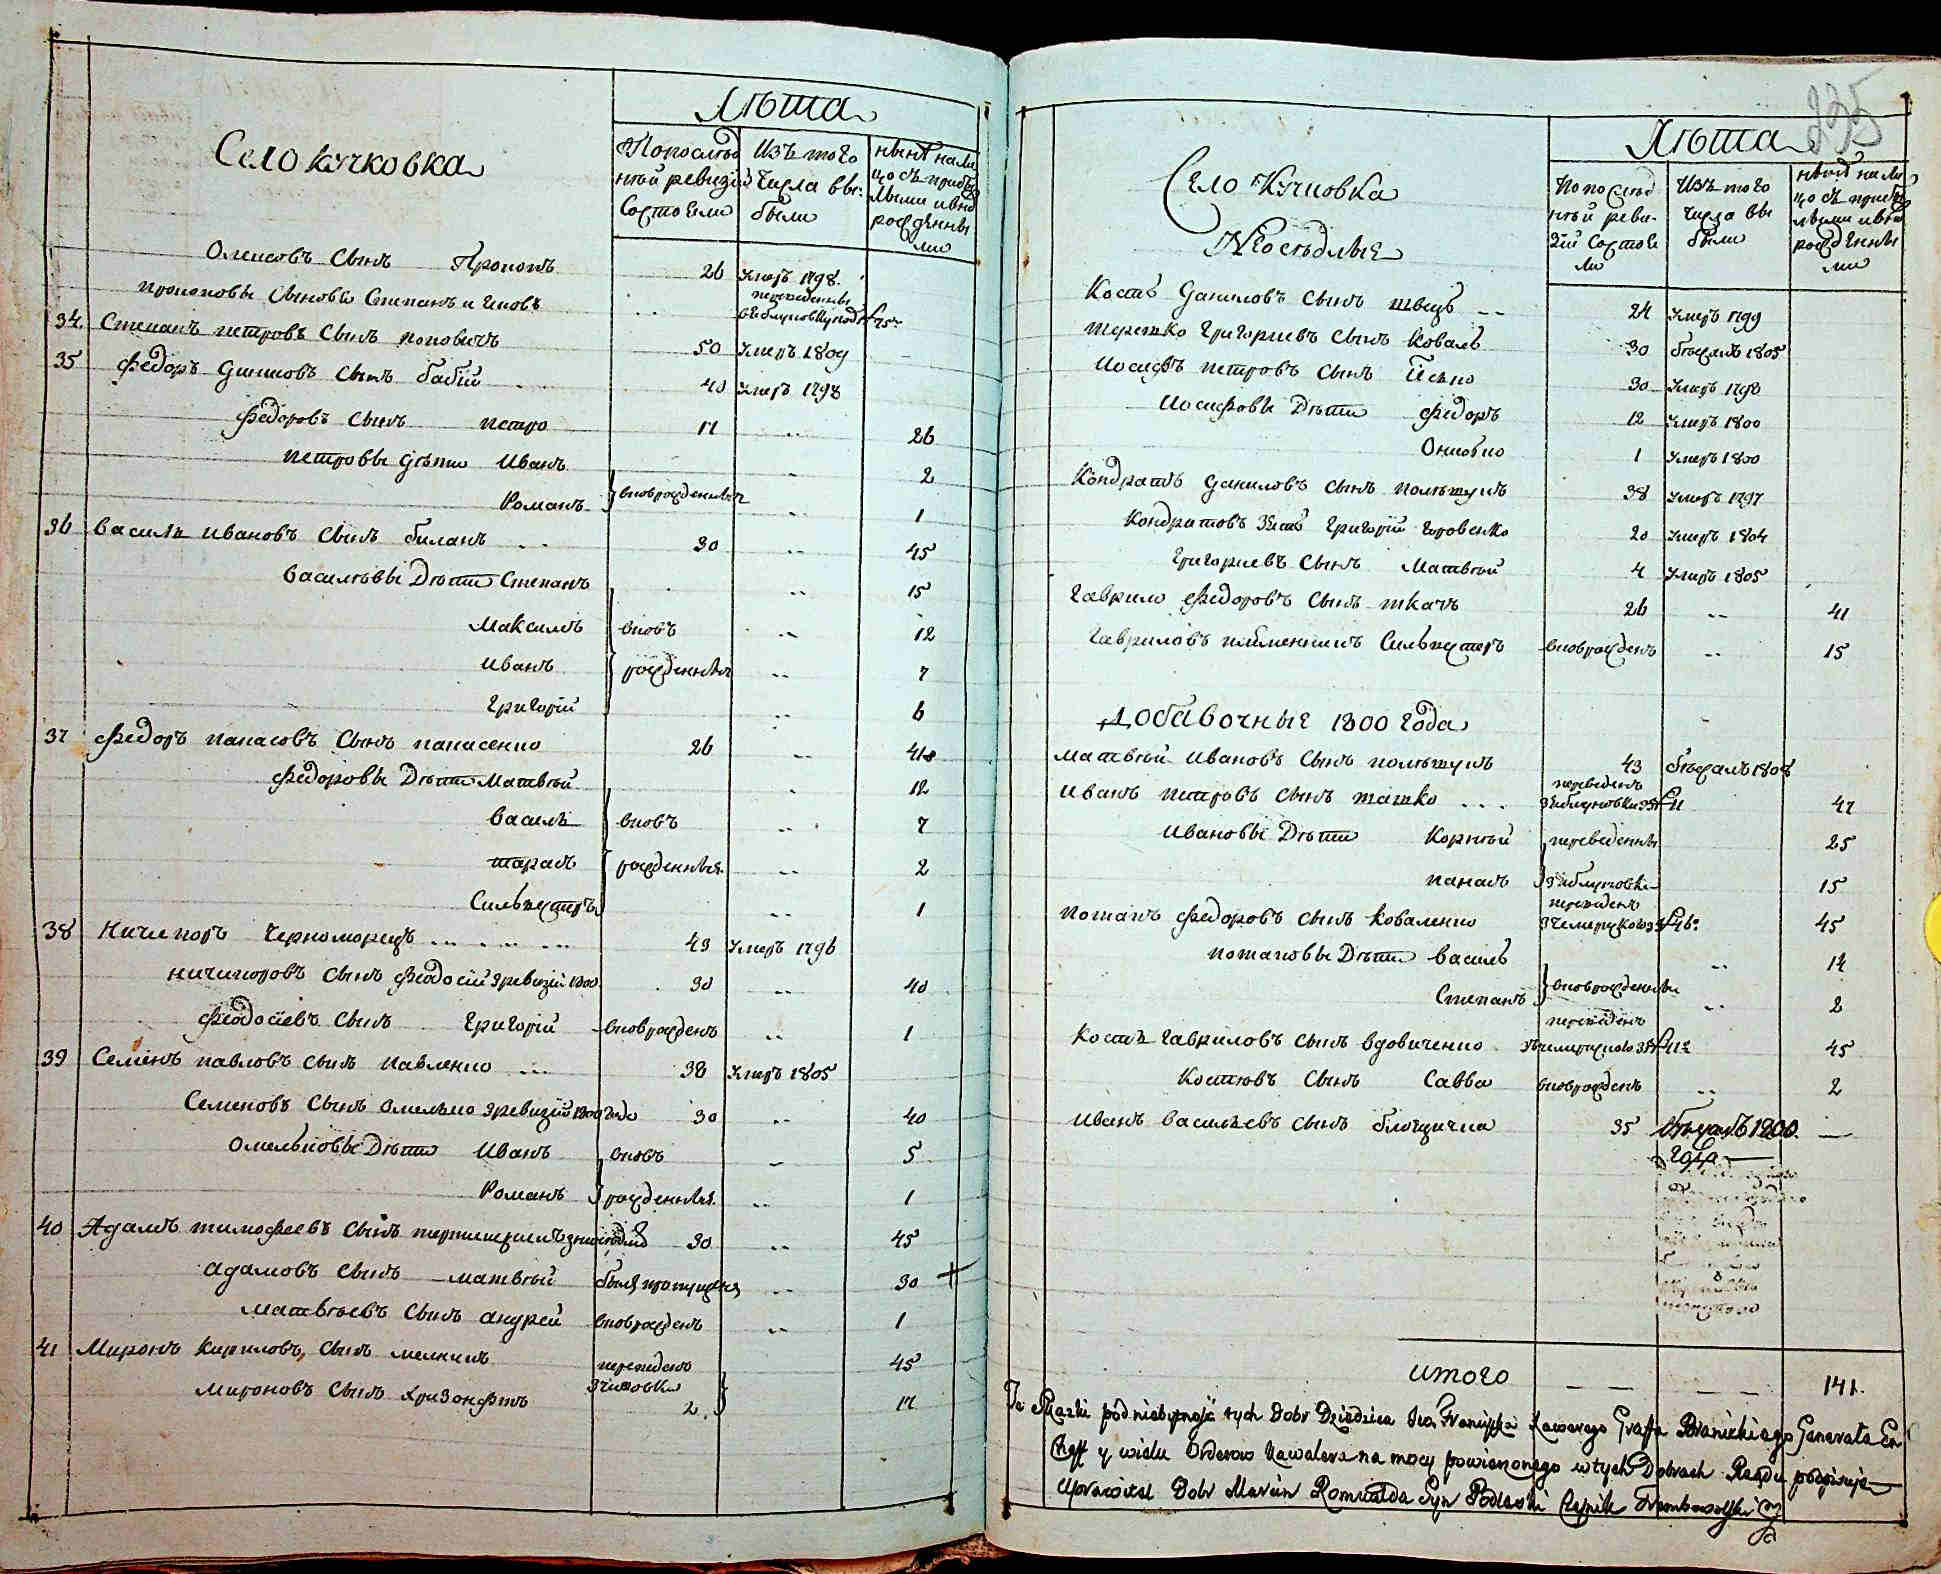 Село Кучковка
Лѣта
По послѣд
ней ревизіи
состояли
Изъ того
числа вы:
были
нынѣ на ли
цо съ прибы
лыми и вно
рожденны
ми
Олексовъ сынъ Прокопъ 26 умеръ 1798.
Прокоповы сыновья Степанъ и Яковъ .. переведенны
34. Степанъ Петровъ сынъ Поповичъ 50 умеръ 1809
35 Федоръ Денисовъ сынъ Бабій 40 умеръ 1798
Федоровъ сынъ Петро 11 .. 26
Петровы дѣти Иванъ .. 2
Романъ вноврожденные .. 1
36 Василь Ивановъ сынъ Биланъ .. 30 .. 45
Васильевы Дѣти Степанъ .. 15
Максимъ вновъ .. 12
Иванъ рожденные .. 7
Григорій .. 6
37 Федоръ Панасовъ сынъ Панасенко 26 .. 41
Федоровы Дѣти Матвѣй .. 12
Василь вновъ .. 7
Тарасъ рожденные .. 2
Сильвестръ .. 1
38 Ничипоръ Черноморецъ 43 умеръ 1796
Ничипоровъ сынъ Феодосій зревизій 1800 30 .. 40
Феодосіевъ сынъ Григорій вноврожденъ .. 1
39 Семенъ Павловъ сынъ Павленко 38 умеръ 1805
Семеновъ сынъ Омелько зревизій 1800 года 30 .. 40
Омельковы Дѣти Иванъ вновъ .. 5
Романъ рожденные .. 1
40 Адамъ Тимофеевъ сынъ 30 .. 45
Адамовъ сынъ Матвѣй былъ пропущенъ .. 30 +
Матвѣевъ сынъ Андрей вноврожденъ .. 1
41 Миронъ Кириловъ сынъ Мелникъ переведенъ 45
Мироновъ сынъ Хризонфтъ 2. 11
235
Село Кучковка
Неосѣдлые
Лѣта
По послѣд
ней реви-
зіи состоя
ли
Изъ того
числа вы
были
нынѣ на ли
цо съ прибы
лыми и вно
рожденны
ми
Кость Даниловъ сынъ Швецъ .. 24 умеръ 1799
Терешко Григориевъ сынъ Коваль 30 бѣжалъ 1805
Иосифъ Петровъ сынъ 30 умеръ 1798
Иосифовы Дѣти Федоръ 12 умеръ 1800
1 умеръ 1800
Кондратъ Даниловъ сынъ Полѣщукъ 38 умеръ 1797
Кондратовъ зять Григорій 20 умеръ 1804
Григориевъ сынъ Матвѣй 4 умеръ 1805
Гаврило Федоровъ сынъ Ткачъ 26 .. 41
Гавриловъ племенникъ Сильвестеръ вноврожденъ .. 15
Добавочные 1800 года
Матвѣй Ивановъ сынъ Полѣщукъ 43 бѣжалъ 1808
Иванъ Петровъ сынъ Ташко переведенъ 47
Ивановы Дѣти Корнѣй переведенны 25
Панасъ 15
Потапъ Федоровъ сынъ Коваленко переведенъ 45
Потаповы Дѣти Василь .. 14
Степанъ вноврожденные .. 2
Кость Гавриловъ сынъ Вдовиченко переведенъ 45
Костювъ сынъ Савва вноврожденъ .. 2
Иванъ Васильевъ сынъ 35 бѣжалъ 1800. —
года
итого 141.
Te Skazki pod niebytność tych Dobr Dziedzica Franciszka Xawerego Graffa Branickiego Generała En
Cheff y wielu Orderow Kawalera na mocy powierzonego w tych Dobrach Rządu podpisuję
Dobr Marcin Romualda Syn Podlaski